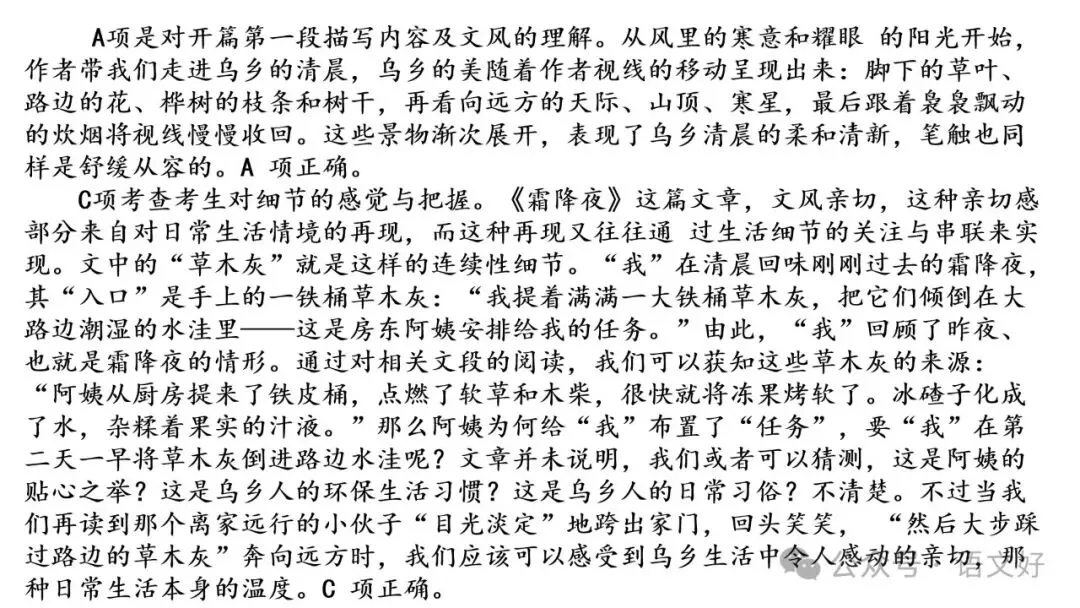 A项是对开篇第一段描写内容及文风的理解。从风里的寒意和耀眼 的阳光开始，
作者带我们走进乌乡的清晨，乌乡的美随着作者视线的移动呈现出来：脚下的草叶、
路边的花、桦树的枝条和树干，再看向远方的天际、山顶、寒星，最后跟着袅袅飘动
的炊烟将视线慢慢收回。这些景物渐次展开，表现了乌乡清晨的柔和清新，笔触也同
样是舒缓从容的。A 项正确。
C项考查考生对细节的感觉与把握。《霜降夜》这篇文章，文风亲切，这种亲切感
部分来自对日常生活情境的再现，而这种再现又往往通 过生活细节的关注与串联来实
现。文中的“草木灰”就是这样的连续性细节。“我”在清晨回味刚刚过去的霜降夜，
其“入口”是手上的一铁桶草木灰：“我提着满满一大铁桶草木灰，把它们倾倒在大
路边潮湿的水洼里——这是房东阿姨安排给我的任务。”由此，“我”回顾了昨夜、
也就是霜降夜的情形。通过对相关文段的阅读，我们可以获知这些草木灰的来源：
“阿姨从厨房提来了铁皮桶，点燃了软草和木柴，很快就将冻果烤软了。冰碴子化成
了水，杂糅着果实的汁液。”那么阿姨为何给“我”布置了“任务”，要“我”在第
二天一早将草木灰倒进路边水洼呢？文章并未说明，我们或者可以猜测，这是阿姨的
贴心之举？这是乌乡人的环保生活习惯？这是乌乡人的日常习俗？不清楚。不过当我
们再读到那个离家远行的小伙子“目光淡定”地跨出家门，回头笑笑， “然后大步踩
过路边的草木灰”奔向远方时，我们应该可以感受到乌乡生活中令人感动的亲切，那
种日常生活本身的温度。C 项正确。
公众号 · 语文好